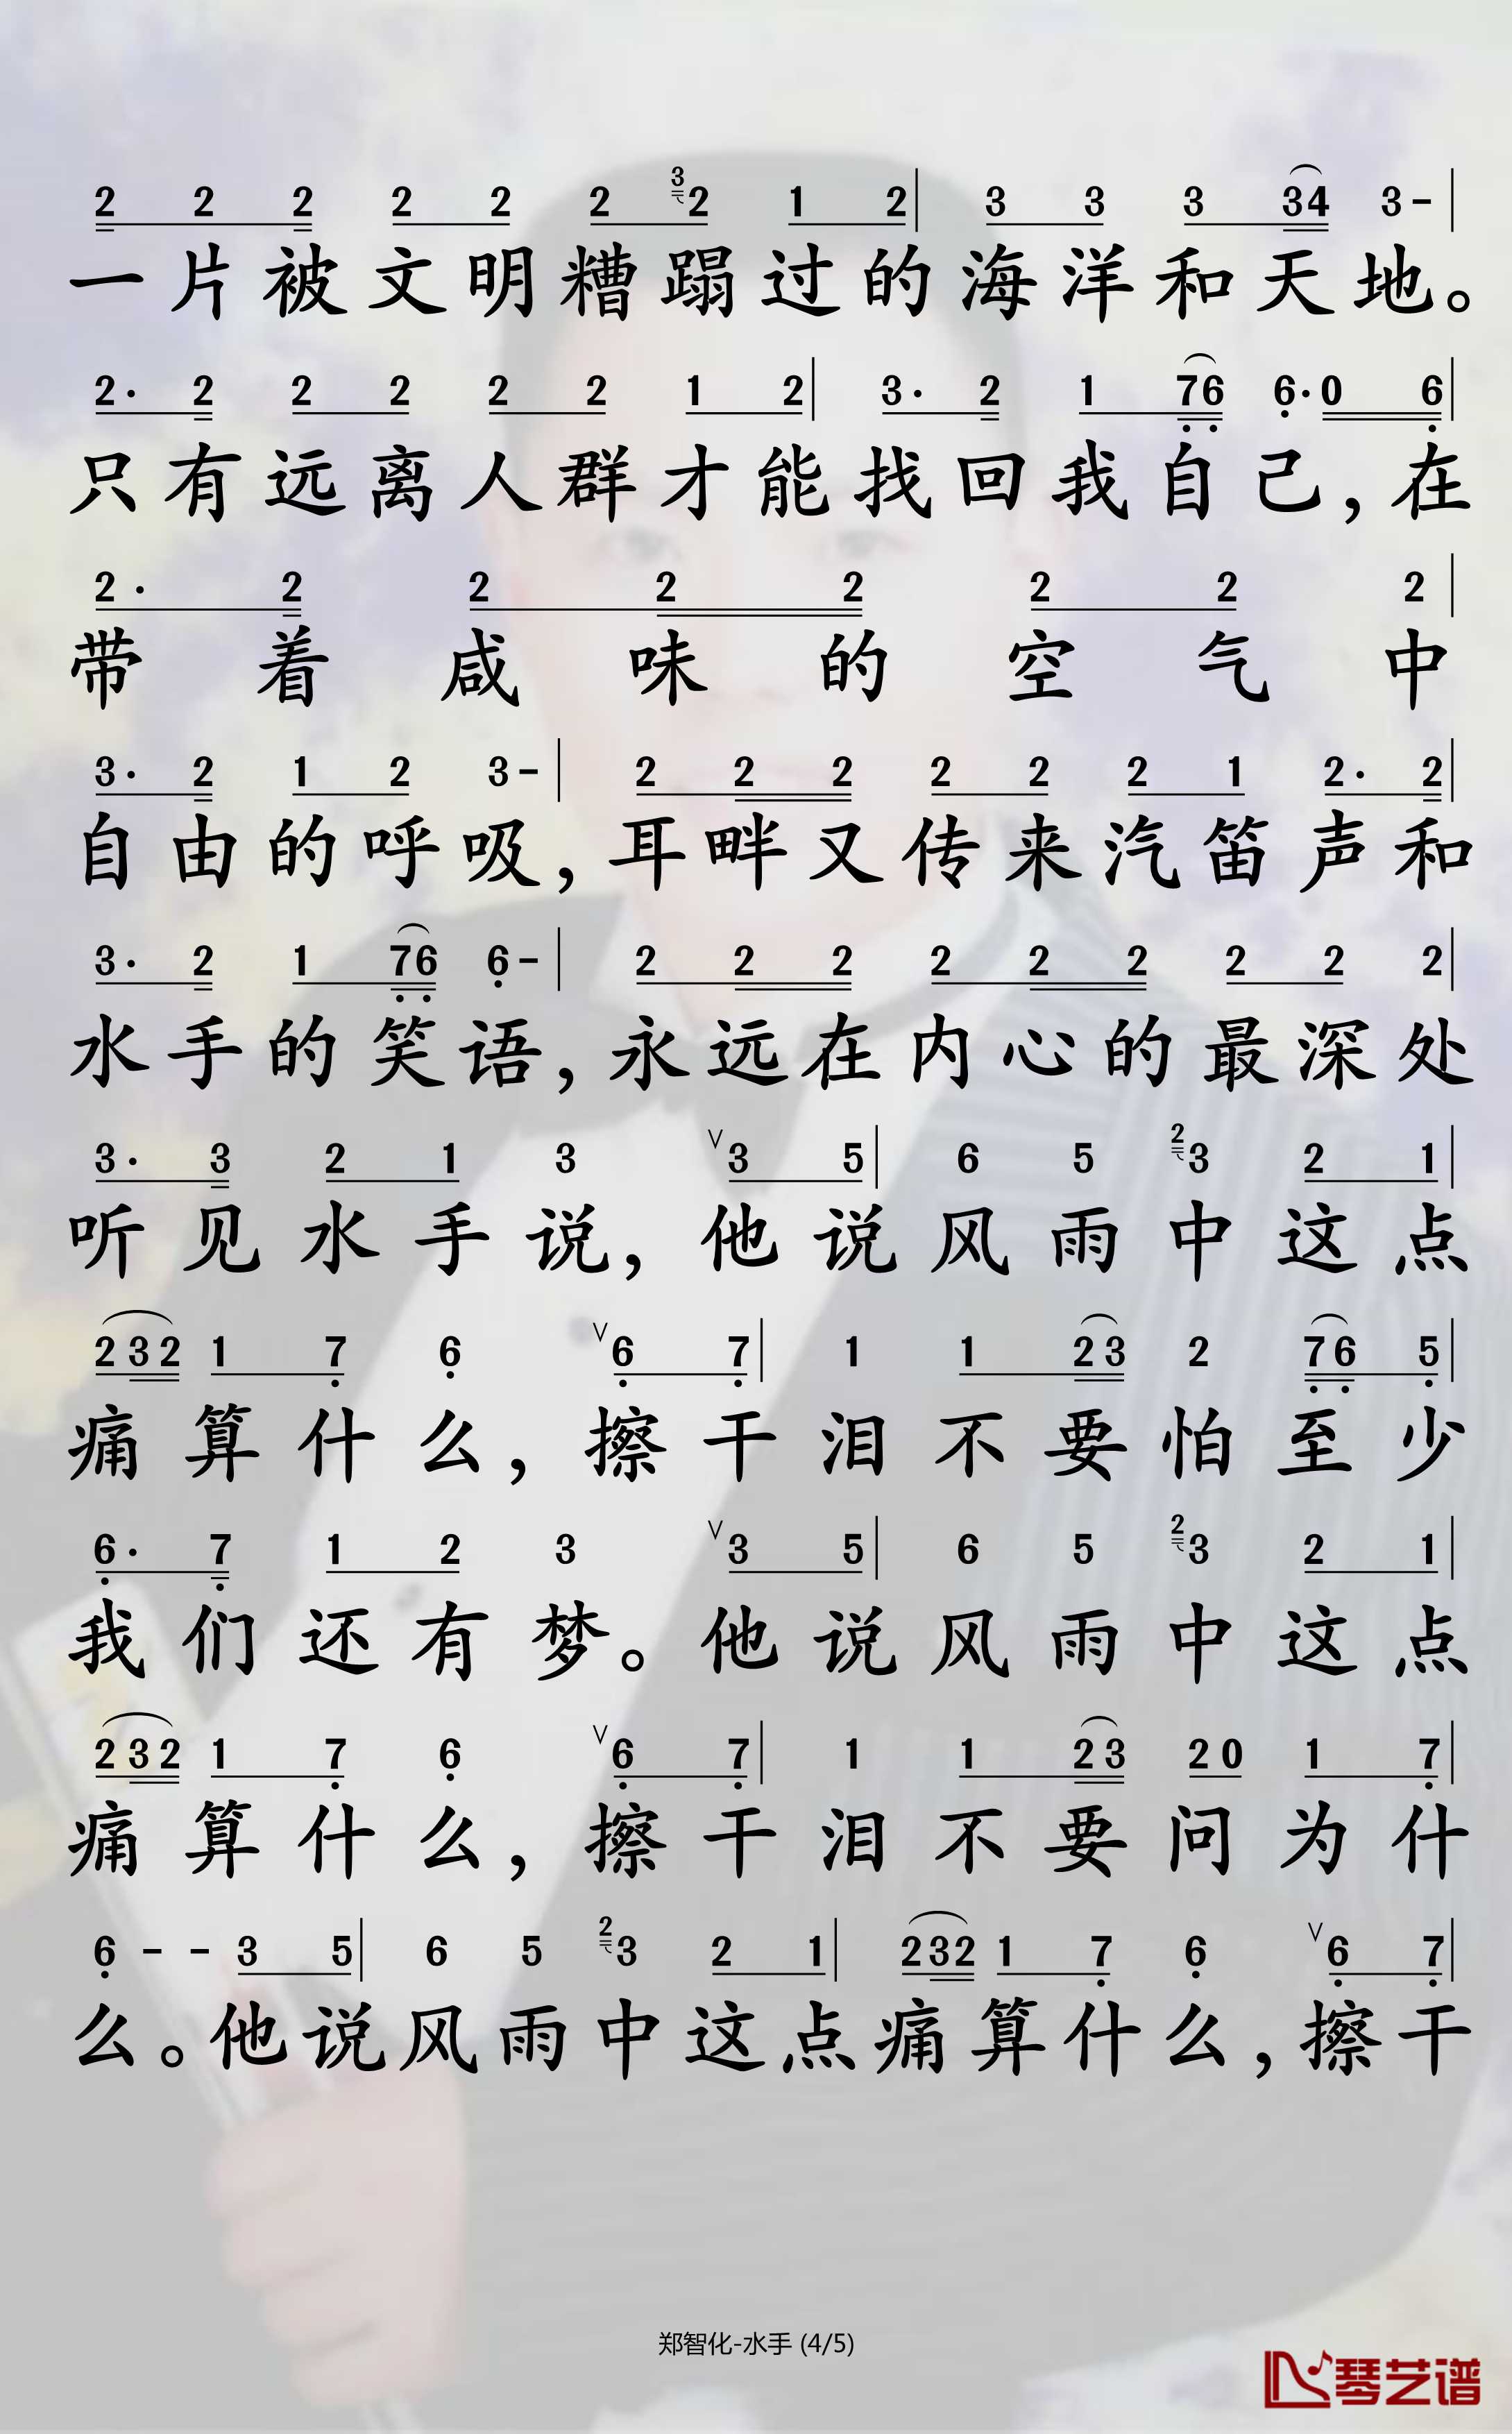 2 2 2 2 2 2 3 2 1 2 | 3 3 3 34 3 - |
一片被文明糟蹋过的海洋和天地。
2· 2 2 2 2 2 1 2 | 3· 2 1 76 6· 0 6 |
只有远离人群才能找回我自己，在
2· 2 2 2 2 2 2 2 |
带着咸味的空气中
3· 2 1 2 3 - | 2 2 2 2 2 2 1 2· 2 |
自由的呼吸，耳畔又传来汽笛声和
3· 2 1 76 6 - | 2 2 2 2 2 2 2 2 2 |
水手的笑语，永远在内心的最深处
3· 3 2 1 3 ∨ 3 5 | 6 5 2 3 2 1 |
听见水手说，他说风雨中这点
2 3 2 1 7 6 ∨ 6 7 | 1 1 2 3 2 7 6 5 |
痛算什么，擦干泪不要怕至少
6· 7 1 2 3 ∨ 3 5 | 6 5 2 3 2 1 |
我们还有梦。他说风雨中这点
2 3 2 1 7 6 ∨ 6 7 | 1 1 2 3 2 0 1 7 |
痛算什么，擦干泪不要问为什
6 - - 3 5 | 6 5 2 3 2 1 | 232 1 7 6 ∨ 6 7 |
么。他说风雨中这点痛算什么，擦干
郑智化-水手 (4/5)
琴艺谱